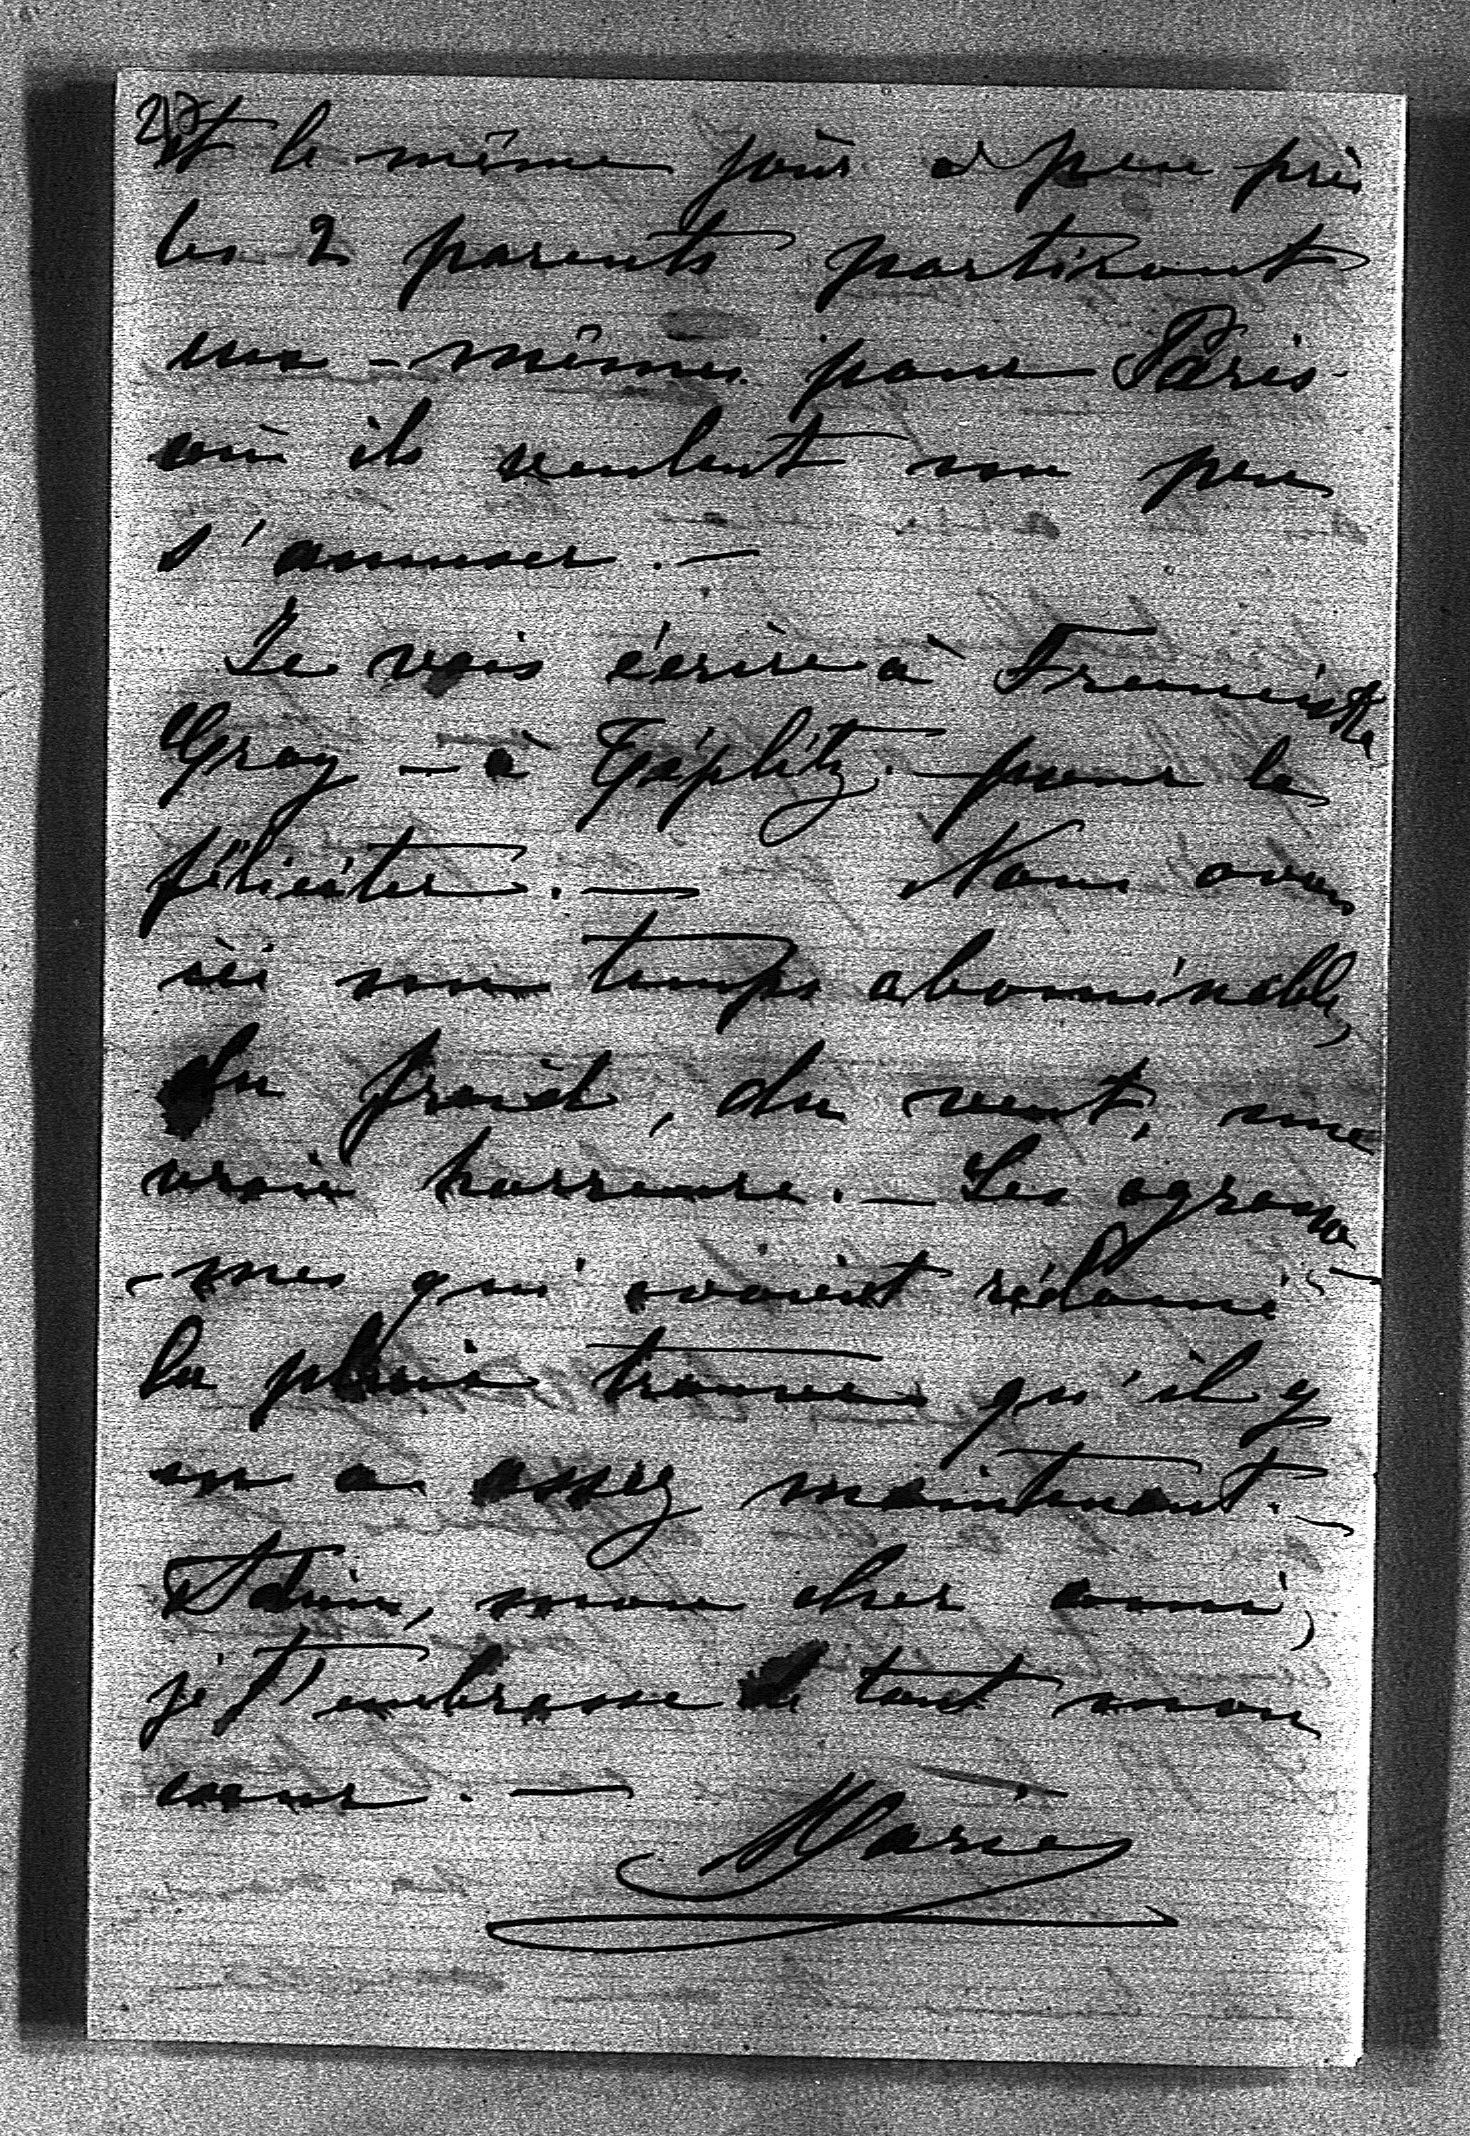 217
et le même jour à peu près
les 2 parents partiront
eux-mêmes pour Paris
où ils veulent un peu
s'amuser. —
Je vais écrire à Franciska
Gray — à Töplitz — pour la
féliciter. — Nous avons
ici un temps abominable,
du froid, du vent, une
vraie horreur. — Les agrono-
-mes qui avaient réclamé
la pluie trouvent qu'il y
en a assez maintenant. —
Adieu, mon cher ami,
je t'embrasse de tout mon
cœur. —
Marie